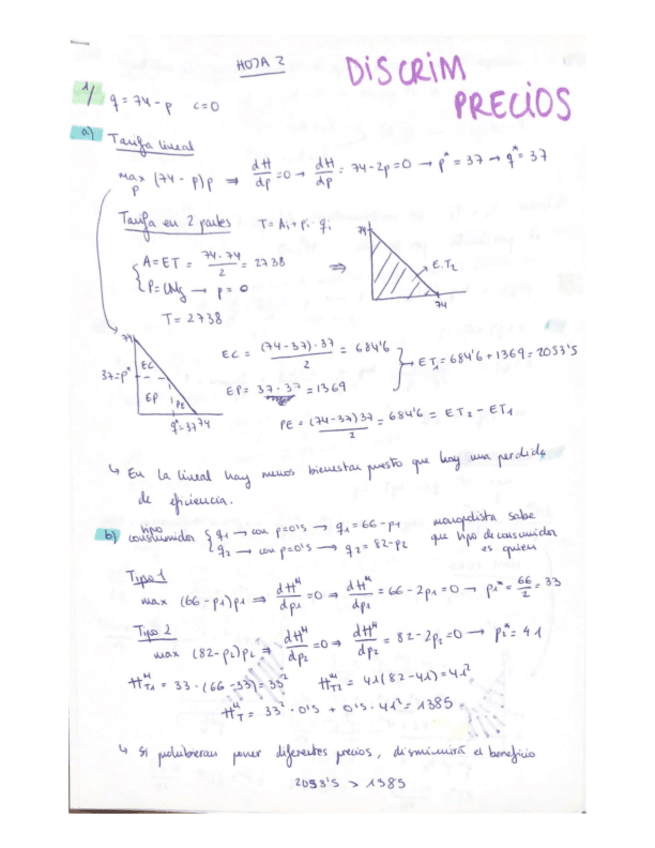 HOJA 2
DISCRIM PRECIOS
1/ q = 74 - p   c = 0
a) Tarifa lineal
max (74 - p)p ⇒ dπ/dp = 0 → dπ/dp = 74 - 2p = 0 → p* = 37 → q* = 37
p
Tarifa en 2 partes   T = Ai + pi · qi
A = ET = 74·74/2 = 2738 ⇒
P = CMg → p = 0
T = 2738
74
E.T2
74
74
37 = p*
EC
EP
PE
q* = 37 74
EC = (74-37)·37/2 = 684'6
EP = 37·37 = 1369
ET1 = 684'6 + 1369 = 2053'5
PE = (74-37)37/2 = 684'6 = ET2 - ET1
↳ En la lineal hay menos bienestar puesto que hay una perdida
de eficiencia.
b) tipo consumidor
q1 → con p=0'5 → q1 = 66 - p1
q2 → con p=0'5 → q2 = 82 - p2
monopolista sabe
que tipo de consumidor
es quien
Tipo 1
max (66 - p1)p1 ⇒ dπᴹ/dp1 = 0 ⇒ dπᴹ/dp1 = 66 - 2p1 = 0 → p1* = 66/2 = 33
Tipo 2
max (82 - p2)p2 ⇒ dπᴹ/dp2 = 0 ⇒ dπᴹ/dp2 = 82 - 2p2 = 0 → p2* = 41
πᴹT1 = 33·(66 - 33) = 33²   πᴹT2 = 41(82 - 41) = 41²
πᴹT = 33² · 0'5 + 0'5 · 41² = 1385
↳ Si pudieran poner diferentes precios, disminuirá el beneficio
2053'5 > 1385